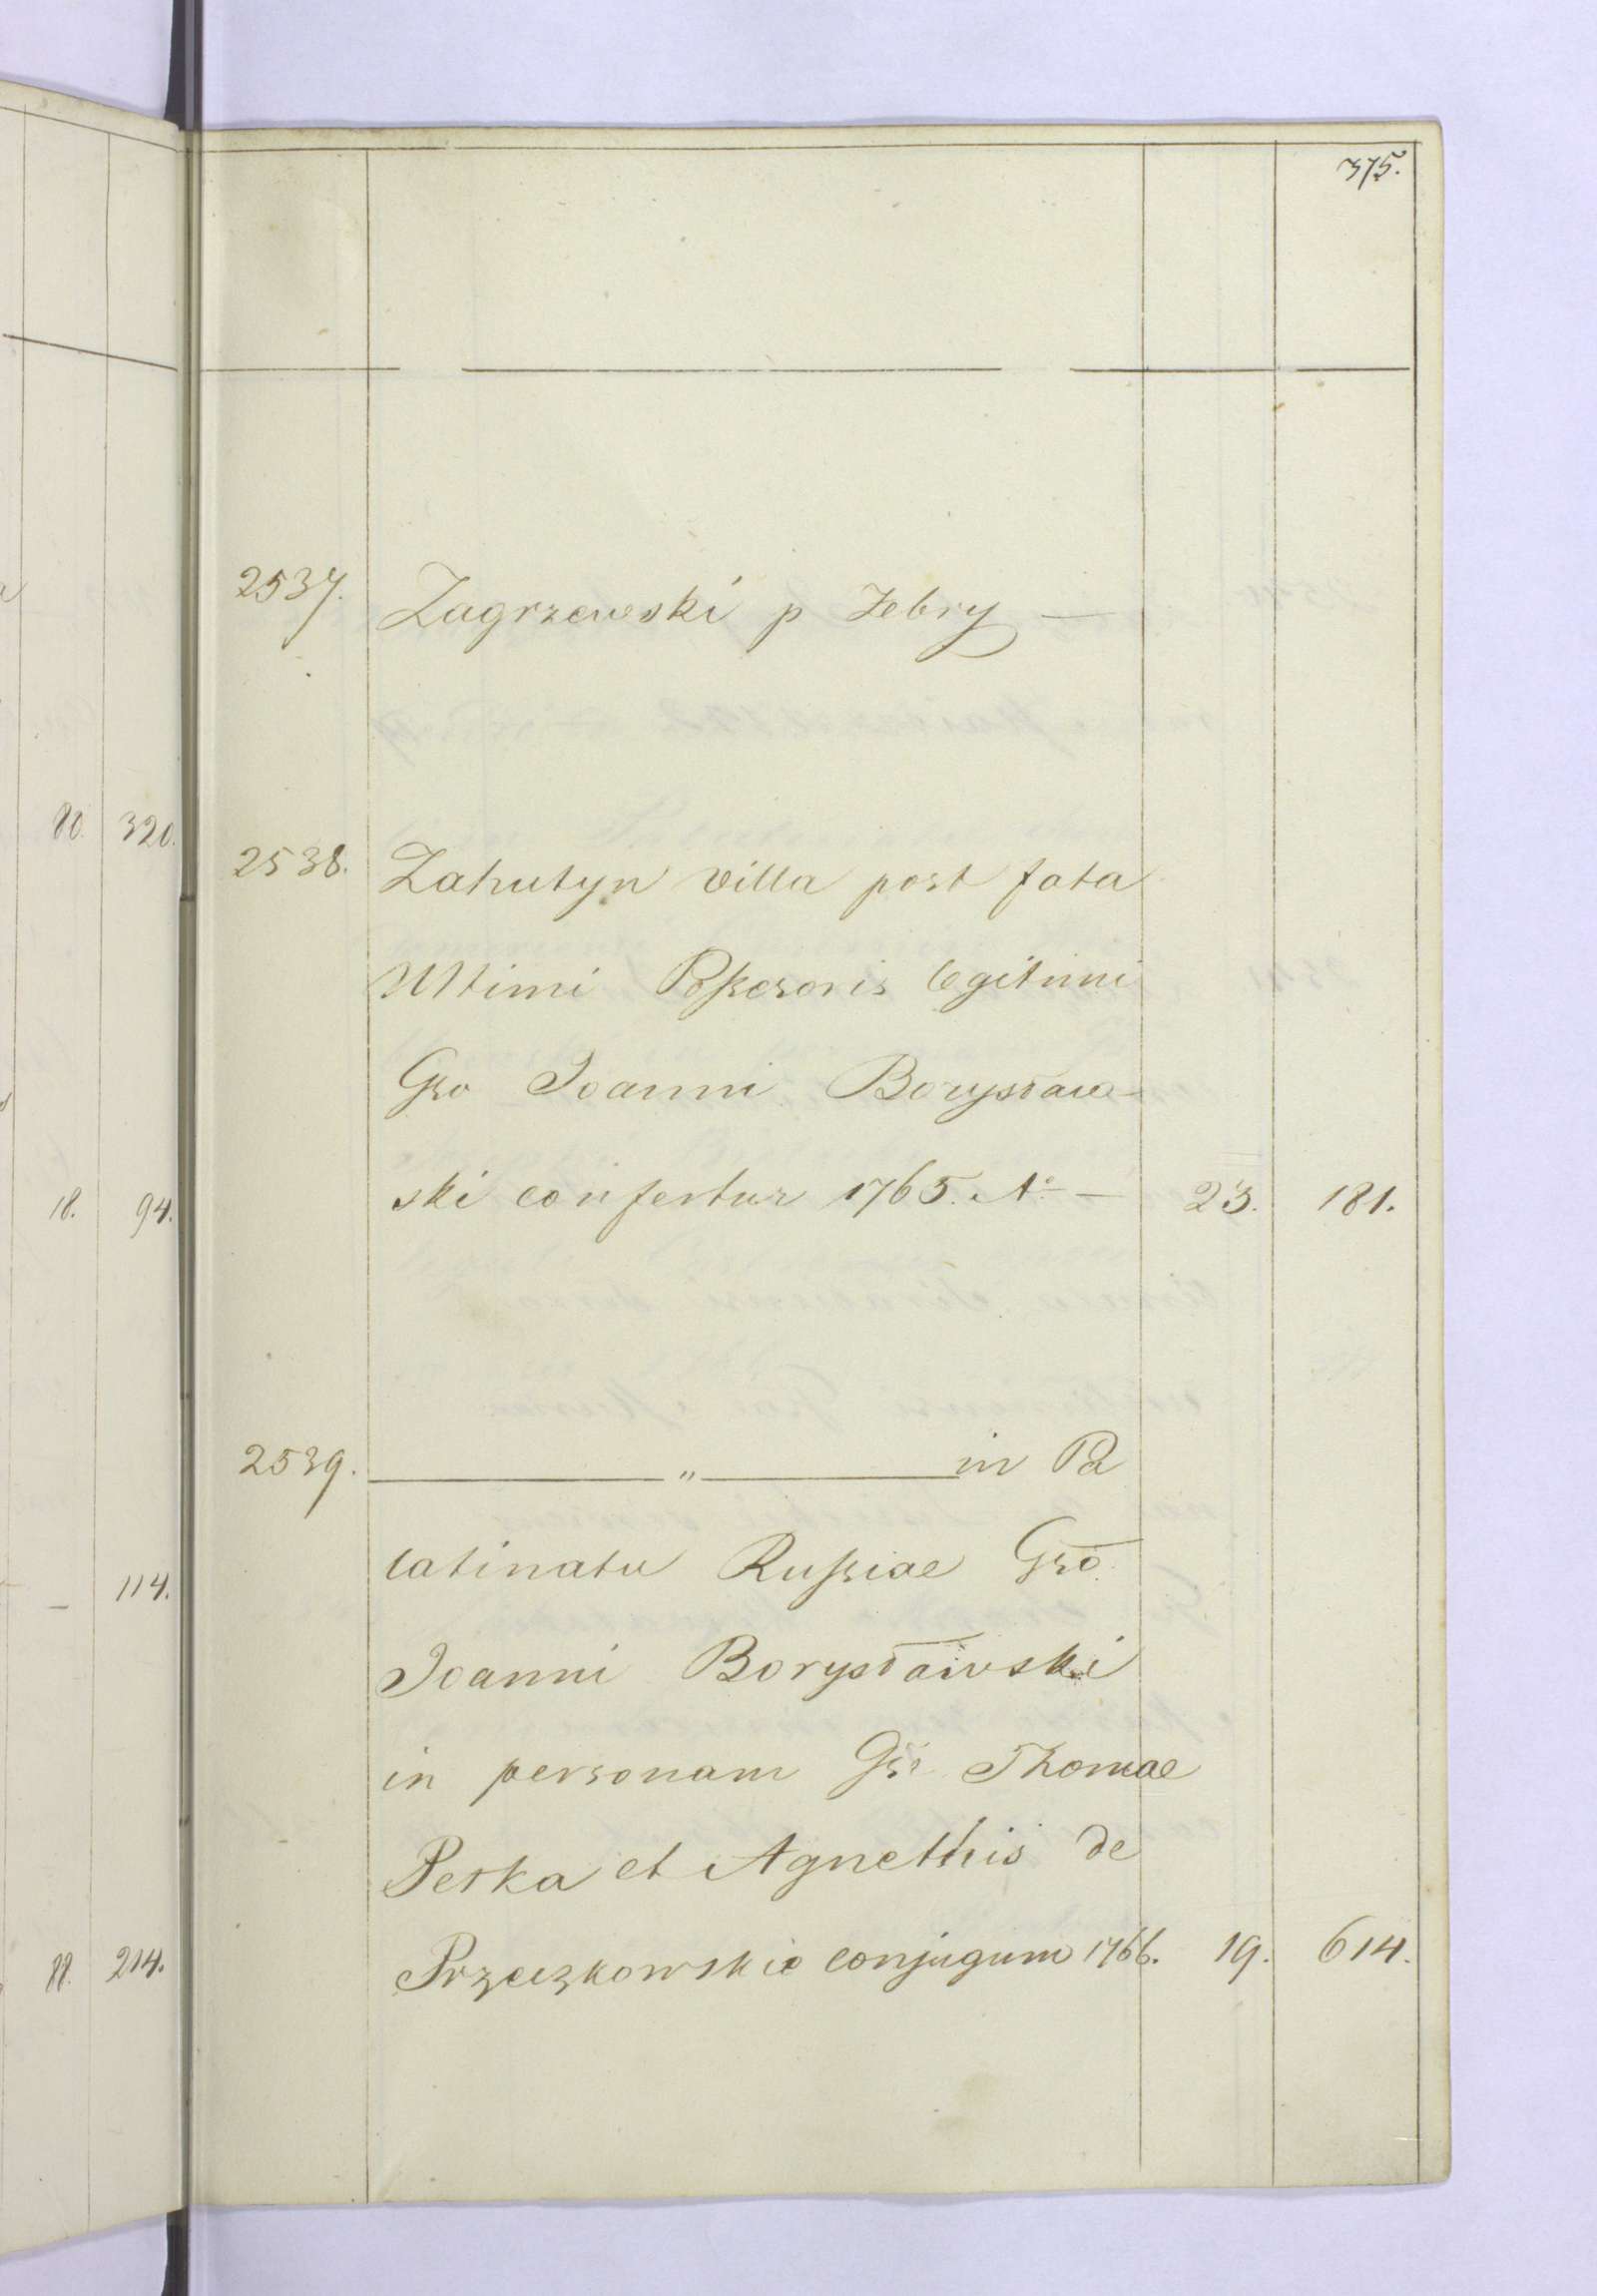 375.
2537. Zagrzewski p Zebry —
2538. Zahutyn villa post fata
Ultimi Poßesoris legitimi
Gso Joanni Borysław-
ski confertur 1765. Aº — 23. 181.
2539. — " — in Pa
latinatu Rußiae Gso
Joanni Borysławski
in personam Gsr Thomae
Peska et Agnethis de
Przeczkowskie conjugum 1766. 19. 614.
80. 320.
18. 94.
— 114.
88. 214.